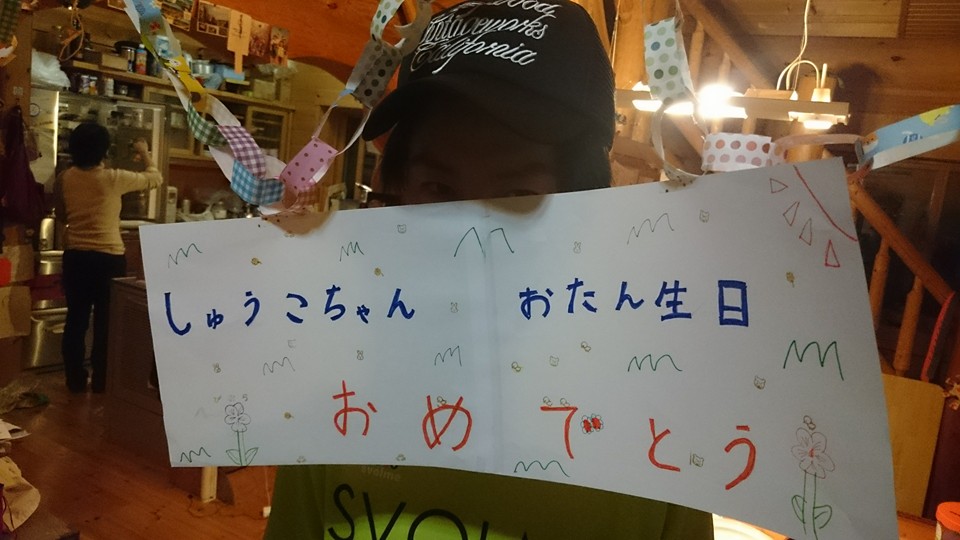 California
しゅうこちゃん おたん生日
おめでとう